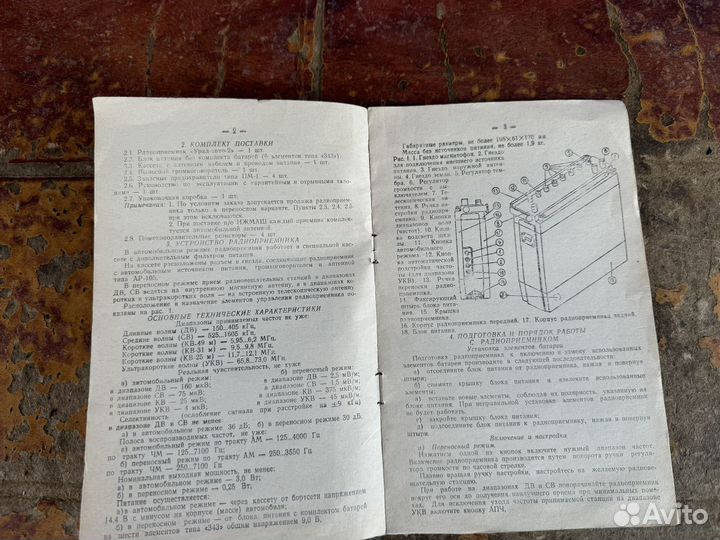 — 2 —
2. КОМПЛЕКТ ПОСТАВКИ
2.1. Радиоприемник «Урал-авто-2» — 1 шт.
2.2. Блок питания без комплекта батарей (6 элементов типа «343»)
2.3. Кассета с антенным кабелем и проводом питания — 1 шт.
2.4. Выносной громкоговоритель — 1 шт.
2.5. Вставки предохранителя ПМ-1 — 4 шт.
2.6. Руководство по эксплуатации с гарантийным и отрывными тало-
нами — 1 шт.
2.7. Упаковочная коробка — 1 шт.
Примечания: 1. По условиям заказа допускается продажа радиоприемника
только в переносном варианте. Пункты 2.3, 2.4, 2.5
при этом исключаются.
2. При поставке п/о ИЖМАШ каждый приемник комплекту-
ется автомобильной антенной.
2.8. Помехоподавительные резисторы — 4 шт.
3. УСТРОЙСТВО РАДИОПРИЕМНИКА
В автомобильном режиме радиоприемник работает в специальной кассе-
те с дополнительным фильтром питания.
На кассете расположены разъем и гнезда, соединяющие радиоприемник
с автомобильным источником питания, громкоговорителем и антенной
типа АР-105.
В переносном режиме прием радиовещательных станций в диапазонах
ДВ, СВ ведется на внутреннюю магнитную антенну, а в диапазонах ко-
ротких и ультракоротких волн — на встроенную телескопическую антенну.
Расположение и назначение элементов управления радиоприемника по-
казаны на рис. 1
ОСНОВНЫЕ ТЕХНИЧЕСКИЕ ХАРАКТЕРИСТИКИ
Диапазоны принимаемых частот не уже:
Длинные волны (ДВ) — 150...405 кГц,
Средние волны (СВ) — 525...1605 кГц,
Короткие волны (КВ-49 м) — 5,95...6,2 МГц,
Короткие волны (КВ-31 м) — 9,5...9,8 МГц,
Короткие волны (КВ-25 м) — 11,7...12,1 МГц,
Ультракороткие волны (УКВ) — 65,8...73,0 МГц.
Реальная чувствительность, не хуже
а) автомобильный режим: б) переносный режим:
в диапазоне ДВ — 160 мкВ; в диапазоне ДВ — 2,5 мВ/м;
в диапазоне СВ — 75 мкВ; в диапазоне СВ — 1,5 мВ/м;
в диапазоне КВ — 25 мкВ; в диапазоне КВ — 375 мкВ/м;
в диапазоне УКВ — 4 мкВ; в диапазоне УКВ — 45 мкВ/м;
Селективность (ослабление сигнала при расстройке на ±9 кГц)
в диапазоне ДВ и СВ не менее
а) в автомобильном режиме 36 дБ; б) в переносном режиме 30 дБ.
Полоса воспроизводимых частот, не уже:
а) в автомобильном режиме по тракту АМ — 125...4000 Гц
по тракту ЧМ — 125...7100 Гц
б) переносный режим по тракту АМ — 250...3550 Гц
по тракту ЧМ — 250...7100 Гц
Номинальная выходная мощность, не менее:
а) в автомобильном режиме — 3,0 Вт;
б) в переносном режиме — 0,25 Вт;
Питание осуществляется:
а) в автомобильном режиме — через кассету от бортсети напряжением
14,4 В с минусом на корпусе (массе) автомобиля;
б) в переносном режиме — от блока питания с комплектом батарей
на шести элементов типа «343» общим напряжением 9,0 В.
— 3 —
Габаритные размеры, не более 195×61×170 мм.
Масса без источников питания, не более 1,9 кг.
Рис. 1. 1. Гнездо магнитофона. 2. Гнездо
для подключения внешнего источника
питания. 3. Гнездо наружной антен-
ны. 4. Гнездо земли. 5. Регулятор тем-
бра. 6. Регулятор
громкости с вы-
ключателем. 7. Те-
лескопическая ан-
тенна. 8. Ручка на-
стройки радиопри-
емника. 9. Кнопки
диапазонов волн
(частот). 10. Кноп-
ка подсвета шка-
лы. 11. Кнопка
автомобильного
режима. 12. Кноп-
ка автоматической
подстройки часто-
ты (для диапазона
УКВ). 13. Линейка
питания
радиоприемника.
14. Фиксирующий
штырь блока
питания. 15. Крышка
радиоприемника.
16. Корпус радиоприемника передний. 17. Корпус радиоприемника задний.
18. Блок питания.
4. ПОДГОТОВКА И ПОРЯДОК РАБОТЫ
С РАДИОПРИЕМНИКОМ
Установка элементов батареи
Подготовка радиоприемника к включению и замену использованных
элементов батареи производите в следующей последовательности:
а) отсоедините блок питания от радиоприемника, нажав и повернув
штырь;
б) снимите крышку блока питания и извлеките использованные
элементы;
в) вставьте новые элементы, соблюдая их полярность, указанную на
блоке питания. При неправильной установке элементов радиоприемник
не будет работать,
г) закройте крышку блока питания;
д) подсоедините блок питания к радиоприемнику, нажав и повернув
штырь.
Включение и настройка
а) Переносный режим
Нажатием одной из кнопок включите нужный диапазон частот.
Включение радиоприемника производится путем поворота ручки регуля-
тора громкости по часовой стрелке.
Плавно вращая ручку настройки, настройтесь на желаемую радиове-
щательную станцию.
При работе на диапазонах ДВ и СВ поворачивайте радиоприемник
вокруг его оси до получения наилучшего приема при минимальных поме-
хах. Для исключения ухода частоты принимаемой станции на диапазоне
УКВ включите кнопку АПЧ.
Avito